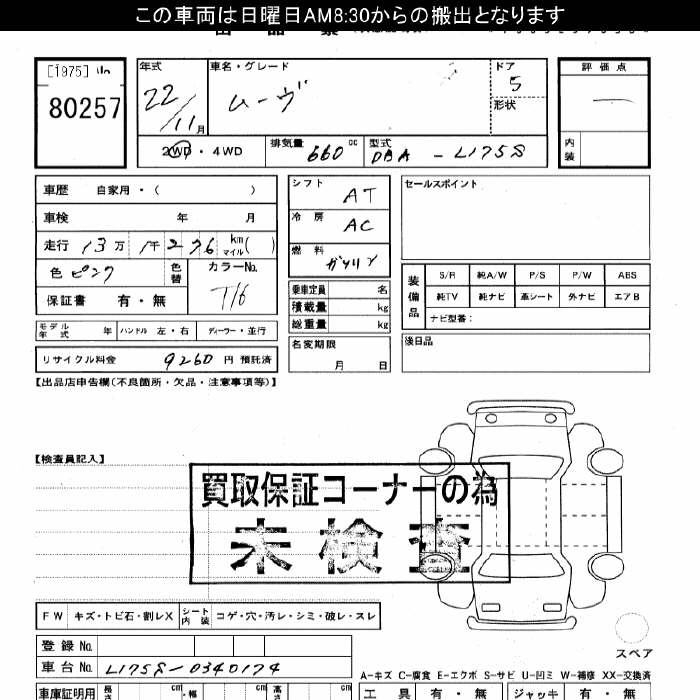 この車両は日曜日AM8:30からの搬出となります
[1975]
80257
年式
22/11月
車名・グレード
ムーヴ
ドア
5
形状
評価点
内装
2WD・4WD
排気量 660 cc
型式 DBA-L175S
車歴 自家用・( )
車検 年 月
走行 13万1千276 km マイル( )
色 ピンク
色替
カラーNo.
T16
保証書 有・無
モデル年式 年 ハンドル 左・右 ディーラー・並行
リサイクル料金 9260 円 預託済
シフト AT
冷房 AC
燃料 ガソリン
乗車定員 名
積載量 kg
総重量 kg
名変期限
月 日
セールスポイント
装備品
S/R 純A/W P/S P/W ABS
純TV 純ナビ 革シート 外ナビ エアB
ナビ型番:
後日品
【出品店申告欄(不良箇所・欠品・注意事項等)】
【検査員記入】
買取保証コーナーの為
未検査
FW キズ・トビ石・割レX シート内装 コゲ・穴・汚レ・シミ・破レ・スレ
登録No.
車台No. L175S-0340174
スペア
A-キズ C-腐食 E-エクボ S-サビ U-凹ミ W-補修 XX-交換済
車庫証明用 長さ cm 幅 cm 高さ cm
工具 有・無 ジャッキ 有・無